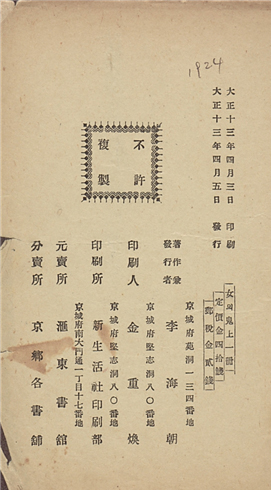 1924
大正十三年四月三日 印刷
大正十三年四月五日 發行
女의鬼上一冊
定價金四拾錢
郵稅金貳錢
不許
複製
著作兼
發行者
京城府苑洞一三四番地
李海朝
京城府堅志洞八〇番地
印刷人 金重煥
京城府堅志洞八〇番地
印刷所 新生活社印刷部
京城府南大門通一丁目十七番地
元賣所 滙東書館
分賣所 京鄉各書舖